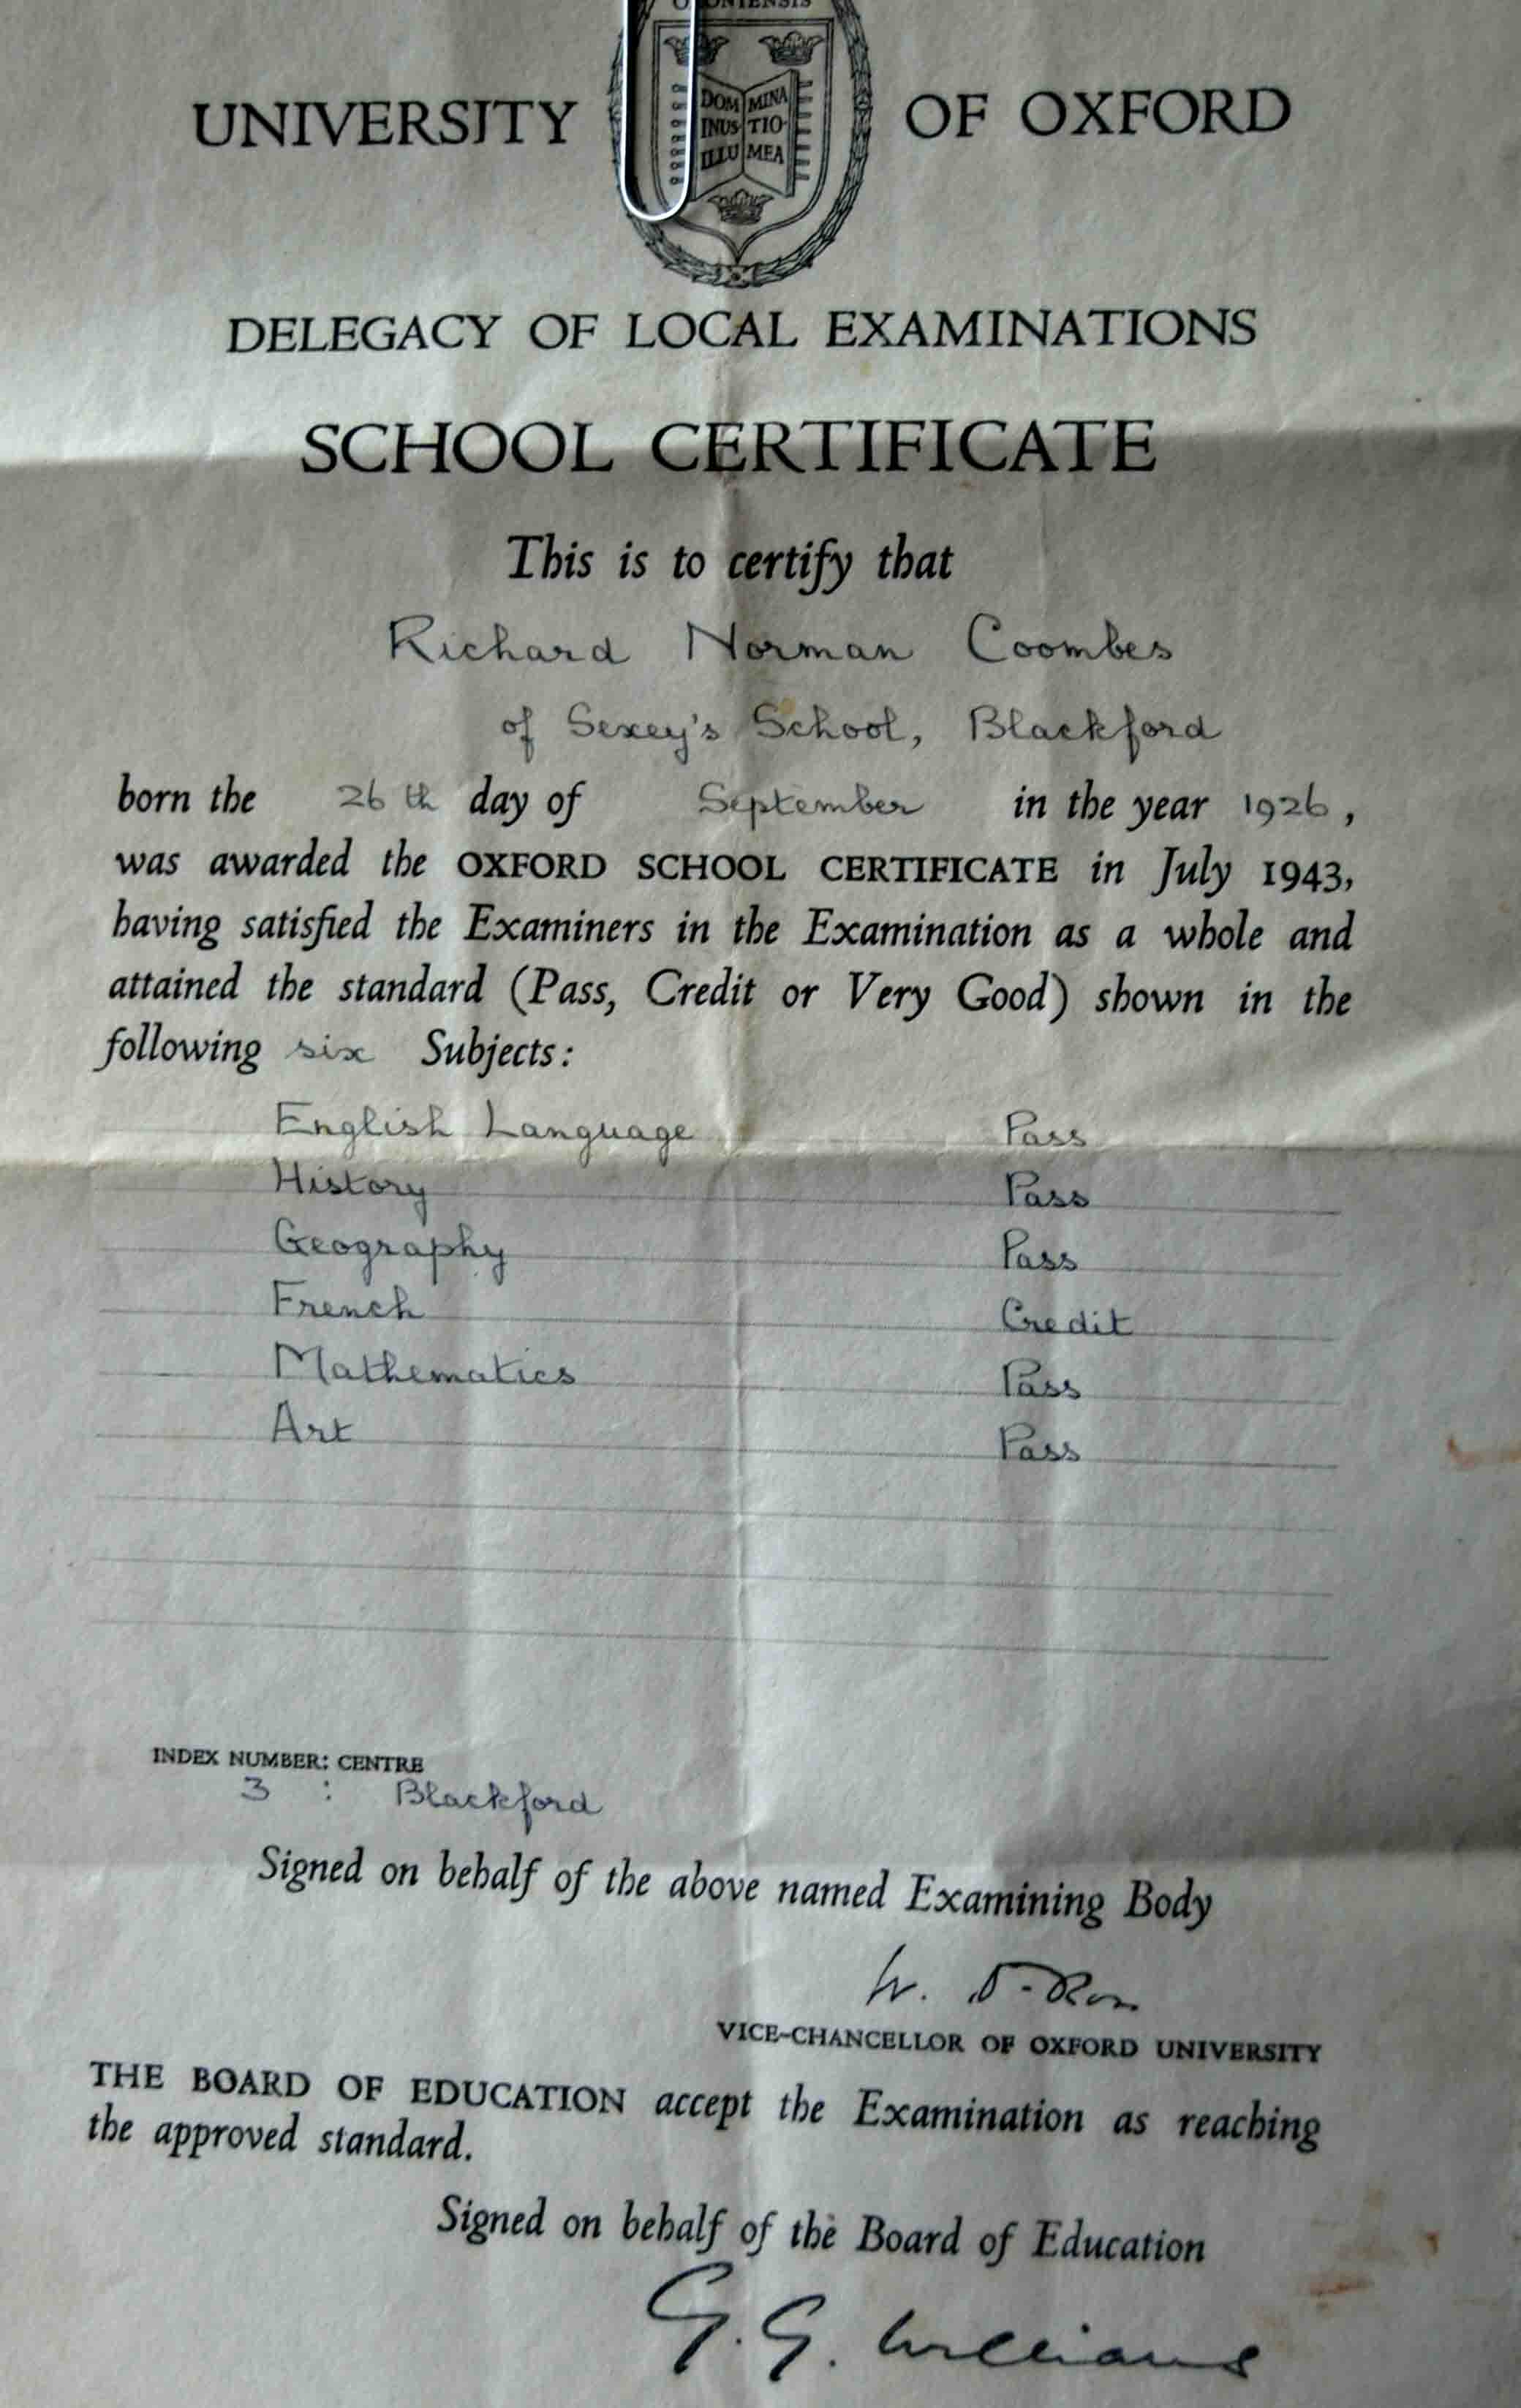 UNIVERSITY OF OXFORD
DOM MINA
INUS TIO-
ILLU MEA
DELEGACY OF LOCAL EXAMINATIONS
SCHOOL CERTIFICATE
This is to certify that
Richard Norman Coombes
of Sexey's School, Blackford
born the 26th day of September in the year 1926,
was awarded the OXFORD SCHOOL CERTIFICATE in July 1943,
having satisfied the Examiners in the Examination as a whole and
attained the standard (Pass, Credit or Very Good) shown in the
following six Subjects:
English Language Pass
History Pass
Geography Pass
French Credit
Mathematics Pass
Art Pass
INDEX NUMBER: CENTRE
3 : Blackford
Signed on behalf of the above named Examining Body
W. D. Ross
VICE-CHANCELLOR OF OXFORD UNIVERSITY
THE BOARD OF EDUCATION accept the Examination as reaching
the approved standard.
Signed on behalf of the Board of Education
G. G. Williams